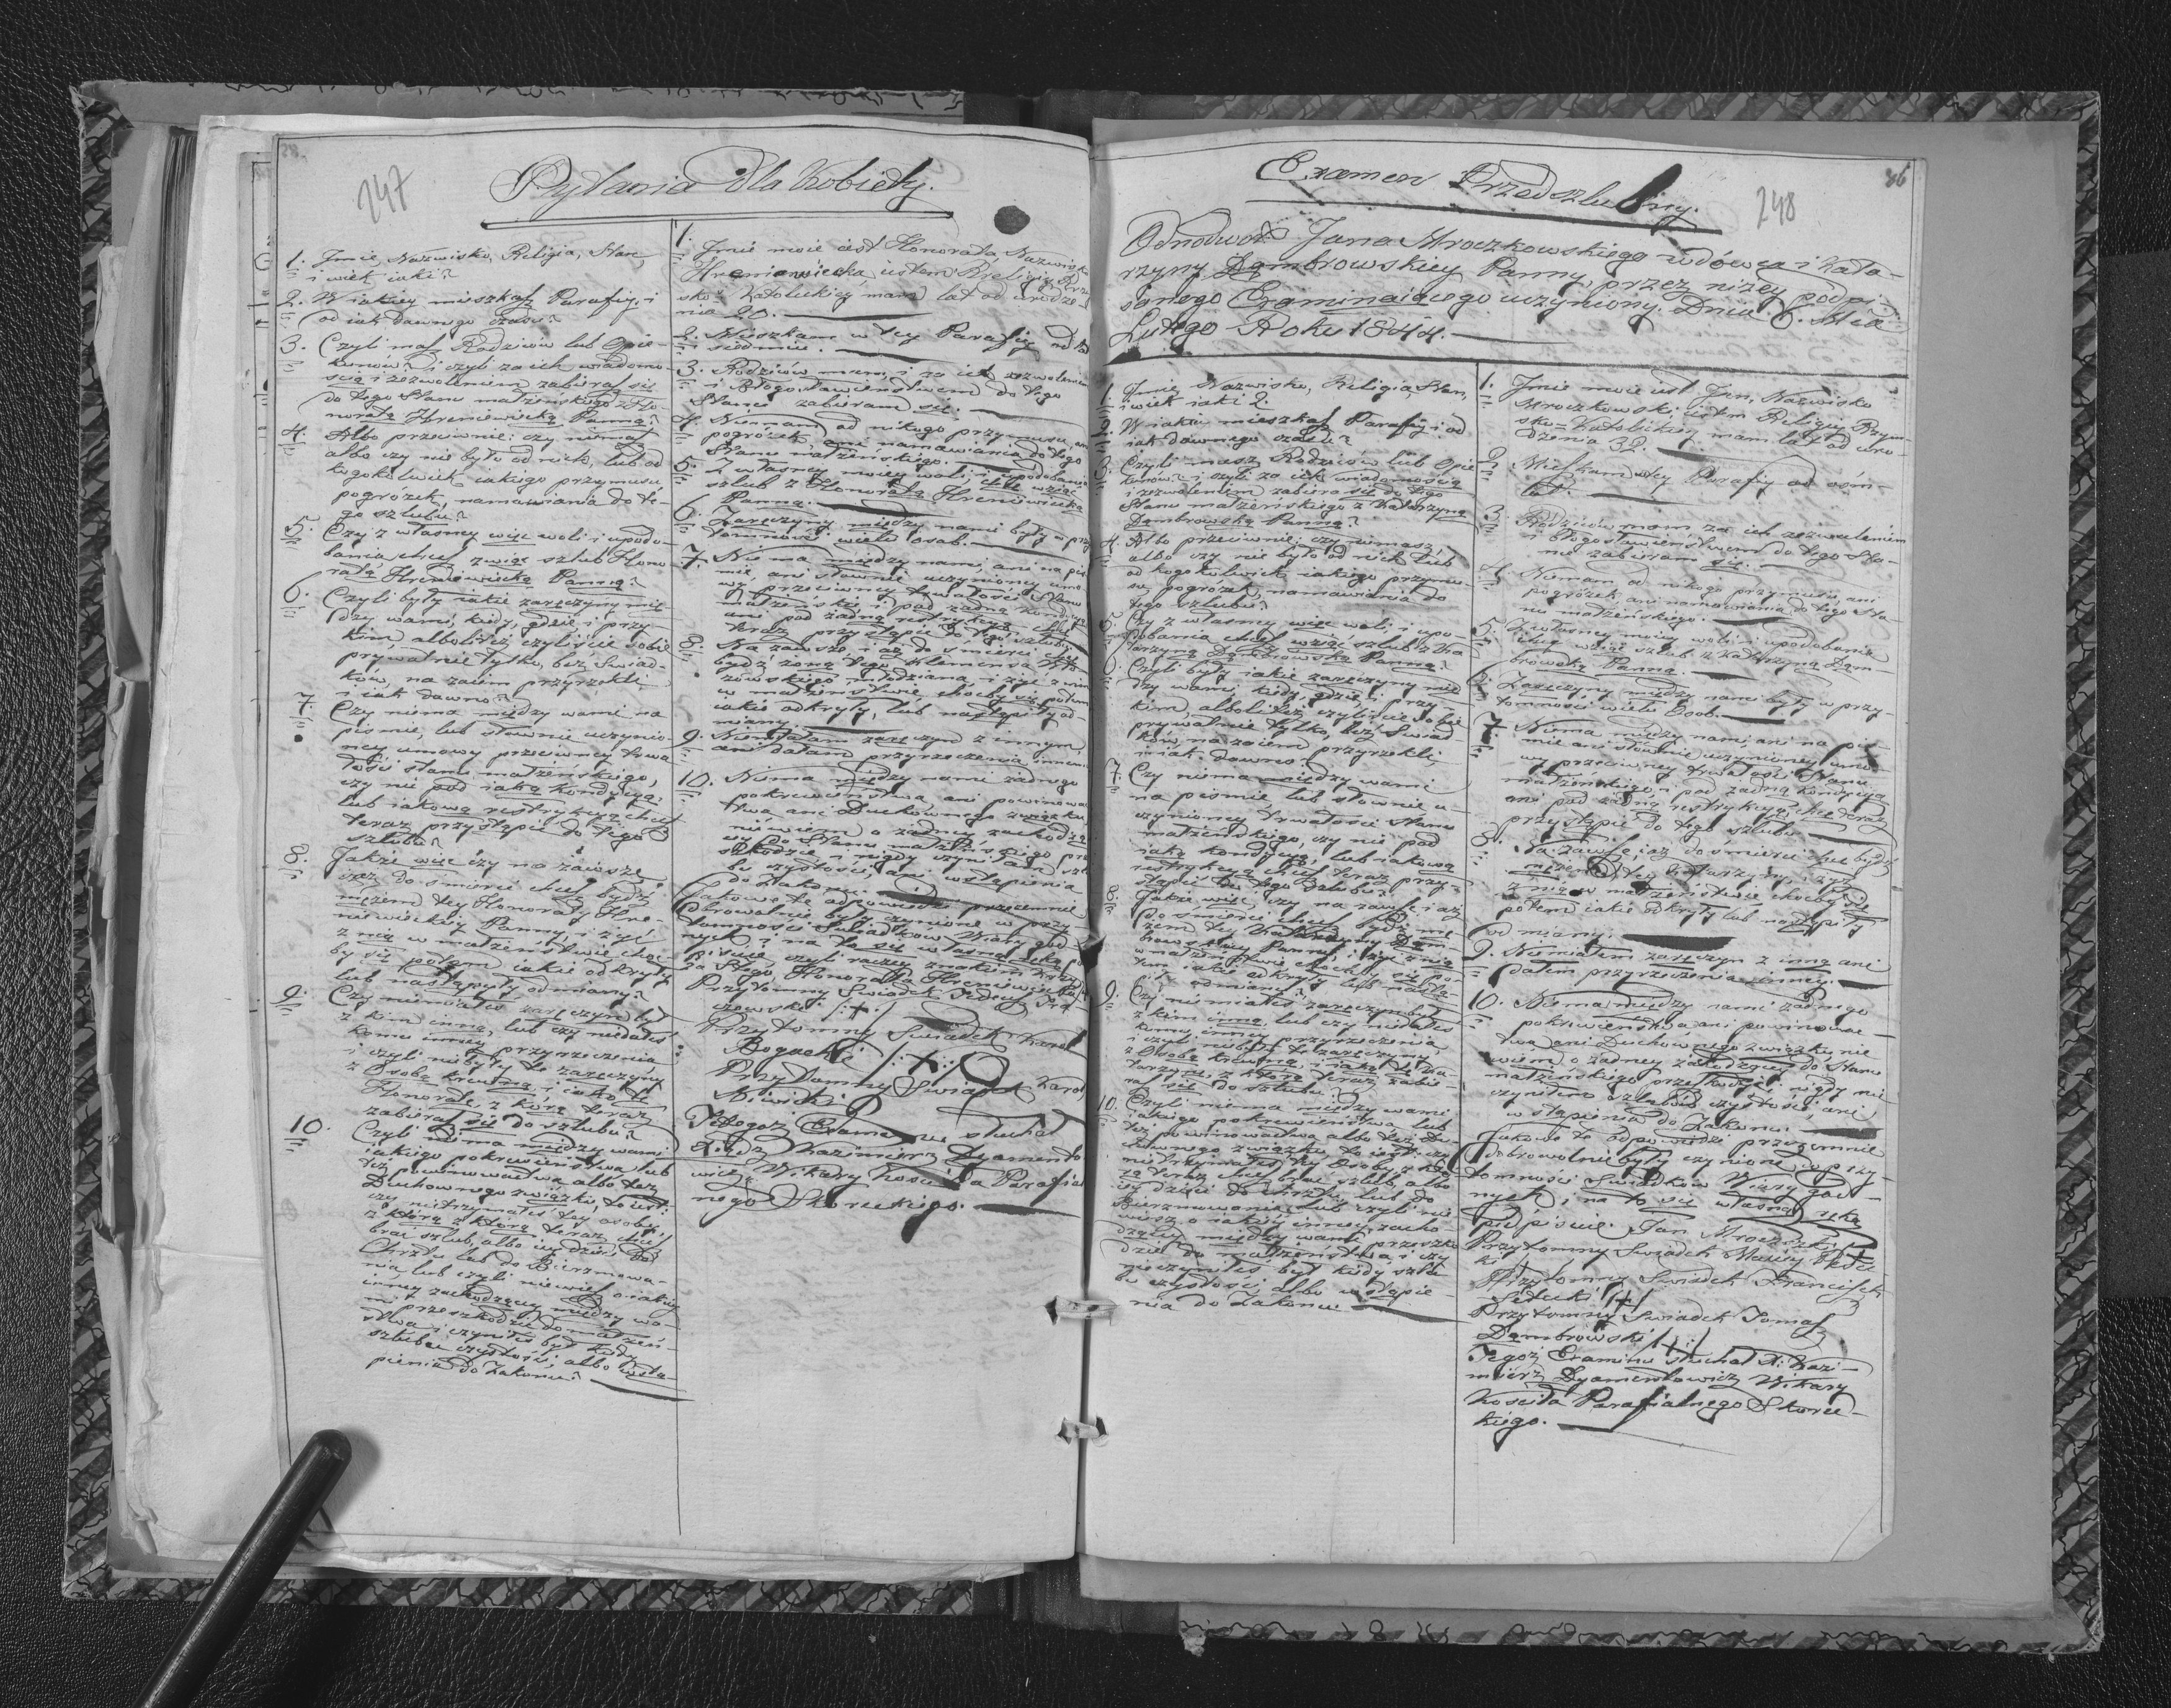 247
Pytania dla Kobiety.
1. Jmie, Nazwisko, Religia, Stan
i wiek iaki?
2. W iakiey mieszkasz Parafiy, i
od iak dawnego czasu?
3. Czyli masz Rodziców lub Opie-
kunów? i czyli za ich wiadomo-
scią i zezwoleniem zabierasz się
do tego Stanu małżeńskiego z Ho-
noratą Hreniewiecką Panną?
4. Albo przeciwnie: czy niemasz
albo czy nie było od nich, lub od
kogokolwiek iakiego przymusu
pogróżek, namawiania do te-
go szlubu?
5. Czy z własney więc woli i upodo-
bania chcesz wziąć szlub z Hono-
ratą Hreniewiecką Panną?
6. Czyli były iakie zaręczyny mię-
dzy wami, kiedy, gdzie i przy
kim albolitéż czyliście sobie
prywatnie tylko, bez Swiad-
ków, na zaiem przyrzekli
i iak dawno?
7. Czy niema między wami na
pismie, lub słownie uczynio-
ney umowy przeciwney trwa
łości stanu małżeńskiego,
czy nie pod iaką kondycyą,
lub iakową restrykcyą chcesz
teraz przystąpić do tego
szlubu?
8. Jakże więc czy na zawsze
iaż do śmierci chcesz bydź
mężem tey Honoraty Hre-
niewieckiey Panny, i żyć
z nią w małżeństwie choć
by się potem iakie odkryły
lub nastąpiły odmiany?
9. Czy niemiałeś zaręczyn był
z kim inną, lub czy niedałeś
komu inney przyrzeczenia
i czyli niebyły te zaręczyny
z Osobą krewną, i iaką te
Honoracie, z którą teraz
zabierasz się do szlubu?
10. Czyli niema między wami
iakiego pokrewieństwa lub
też powinowactwa albo też
Duchownego związku, to iest:
czy nietrzymałeś tey osoby,
z którą z którą teraz chcesz
brać szlub, albo iey dzieci do
Chrztu lub do Bierzmowa-
nia lub czyli niewiesz o iakiey
inney zachodzącey między wa-
mi przeszkodzie do małżeń-
stwa i czyniłeś był kiedy
szlubu czystości, albo wstą-
pienia do Zakonu?
1. Jmie moie iest Honorata Nazwisko
Hreniewiecka iestem Religiy Rzym
sko- Katolickiey mam lat od urodze-
nia 20.
2. Mieszkam w tey Parafiy od lat
siedmiu.
3. Rodziców mam, i za ich zezwoleniem
i Błogosławieństwem do tego
Stanu zabieram się.
4. Niemam od nikogo przymusu, ani
pogróżek, ani namawiania do tego
Stanu małżeńskiego.
5. Z własney moiey woli, i upodobania
chcę wziąć
szlub z Honoratą Hreniewiecką
Panną.
6. Zaręczyny między nami były w przy
tomności wielu osób.
7. Nie ma między nami, ani na piś
mie, ani słownie uczynioney umo-
wy przeciwney trwałości Stanu
małżeńskiego i pod żadną kondycyą
ani pod żadną restrykcyą chcę
teraz przystąpić do tego szlubu.
8. Na zawsze, i aż do śmierci chcę
bydź żoną tego Klemensa
młodziana, i żyć z nim
w małżeństwie choćby się potem
iakie odkryły, lub nastąpiły od-
miany.
9. Niemiałam zaręczyn z innym,
ani dałam przyrzeczenia innemu.
10. Niema między nami żadnego
pokrewieństwa ani powinowac
twa ani Duchownego związku,
nie wiem o żadney zachodzą
cey do Stanu małżeńskiego prze
szkodzie i nigdy czyniłam szlu
bu czystości, ani wstąpienia
do Zakonu.
Jakowe te odpowiedzi przezemnie
dobrowolnie były czynione w przy-
tomności Swiadków Wiary god-
nych i na to się własną ręką po
pisuię, czyli raczey znakiem krzy
ża Stego Honorata Hreniewiecka
Przytomny Swiadek
/:+:/
Przytomny Swiadek Karol
Bogucki /:+:/
Przytomny Swiadek Karol
Niwicki
Tegoż Examinu słuchał
Xiądz Kazimierz Dyamento
wicz, Wikary Kościoła Parafial
nego Skoreckiego.
86
248
Examen Przedszlubny.
Odnodwor: Jana Mroczkowskiego wdówca i Kata-
rzyny Dąmbrowskiey Panny, przez niżey podpi-
sanego Examinaiącego uczyniony. Dnia 6. Mca
Lutego Roku 1844.
1. Jmie, Nazwisko, Religia, Stan,
i wiek iaki?
2. W iakiey mieszkasz Parafiy i od
iak dawnego czasu?
3. Czyli masz Rodziców lub Opie
kunów? i czyli za ich wiadomością
i zezwoleniem zabierasz się do tego
Stanu małżeńskiego z Katarzyną
Dąmbrowską Panną?
4. Albo przeciwnie: czy niemasz,
albo czy nie było od nich lub
od kogokolwiek iakiego przymu-
su, pogróżek, namawiania do
tego szlubu?
5. Czy z własney więc woli, i upo-
dobania chcesz wziąć szlub z Ka
tarzyną Dąmbrowską Panną?
6. Czyli były iakie zaręczyny mię
dzy wami, kiedy, gdzie, i przy-
kim, albolitéż czyliście sobie
prywatnie tylko, bez Swiad
ków na zaiem przyrzekli
i iak dawno?
7. Czy niema między wami
na pismie, lub słownie u-
czynioney trwałości Stanu
małżeńskiego, czy nie pod
iaką kondycyą, lub iakową
restrykcyą chcesz teraz przy-
stąpić do tego szlubu?
8. Jakże więc, czy na zawsze i aż
do śmierci chcesz bydź mę
żem tey Katarzyny Dąm-
browskiey Panny, i żyć z nią
w małżeństwie choćby się po-
tem iakie odkryły lub nastą-
piły odmiany?
9. Czy niemiałeś zaręczyn był
z kim inną, lub czy niedałeś
komu inney przyrzeczenia,
i czyli niebyły te zaręczyny
z Osobą krewną, i iaką te Ka
tarzynie, z którą teraz zabie-
rasz się do szlubu?
10. Czyli niema między wami
iakiego pokrewieństwa lub
też powinowactwa albo też Du-
chownego związku, to iest: czy
nietrzymałeś tey Osoby z któ
rą teraz chcesz brać szlub, albo
iey dzieci do Chrztu, lub do
Bierzmowania lub czyli nie
wiesz o iakiey inney zacho-
dzącey między wami przeszko
dzie do małżeństwa i czy
nieczyniłeś był kiedy szlu
bu czystości albo wstąpie-
nia do Zakonu.
1. Jmie moie iest Jan, Nazwisko
Mroczkowski, iestem Religiy Rzym-
sko-Katolickiey mam lat od uro-
dzenia 32.
2. Mieszkam w tey Parafiy od ośm-
lat.
3. Rodziców mam za ich zezwoleniem
i błogosławieństwem do tego Sta-
nu zabieram się.
4. Niemam od nikogo przymusu, ani
pogróżek ani namawiania do tego Sta-
nu małżeńskiego.
5. Z własney moiey woli i upodobania
chcę wziąć szlub z Katarzyną Dąm-
browską Panną.
6. Zaręczyny między nami były w przy-
tomności wielu Osob.
7. Niema między nami, ani na piś-
mie ani słownie uczynioney umo-
wy przeciwney trwałości Stanu
małżeńskiego, i pod żadną kondycyą
ani pod żadną restrykcyą chcę teraz
przystąpić do tego szlubu.
8. Na zawsze, i aż do śmierci chcę bydź
mężem tey Katarzyny, i żyć
z nią w małżeństwie choćby się
potem iakie odkryły lub nastąpiły
odmiany.
9. Niemiałem zaręczyn z inną ani
dałem przyrzeczenia inney.
10. Niema między nami żadnego
pokrewieństwa ani powinowac-
twa ani Duchownego związku, nie
wiem o żadney zachodzącey do Stanu
małżeńskiego przeszkodzie i nigdy nie
czyniłem szlubu czystości, ani
wstąpienia do Zakonu.
Jakowe te odpowiedzi przezemnie
dobrowolnie były czynione w przy-
tomności Swiadków Wiary god-
nych, i na to się własną ręką
podpisuię. Jan Mroczkowski
Przytomny Swiadek Maciey
Przytomny Swiadek Franciszek
/:+:/
Przytomny Swiadek Tomasz
Dąmbrowski /:+:/
Tegoż Examinu słuchał X. Kazi-
mierz Dyamentowicz Wikary
Kościoła Parafialnego Skorec-
kiego.